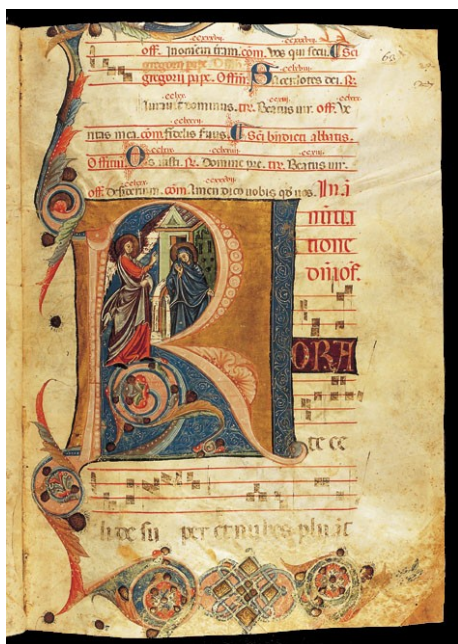 off. In omnem tram. com. Vos qui secu. Sci
gregorii pape. Offitiū. Sacerdotes dei. R.
Iurauit dominus. tre. Beatus uir. off. Ve
ritas mea. com. fidelis seruus. Sci bn̄dicti abbatis.
Offitiū. Os iusti. R. Domine pre. tre. Beatus uir.
off. desiderium. com. Amen dico uobis qđ uos. In ā
nūtia
tione
dn̄i of.
R
ORA
te ce
li de su per et nubes pluāt